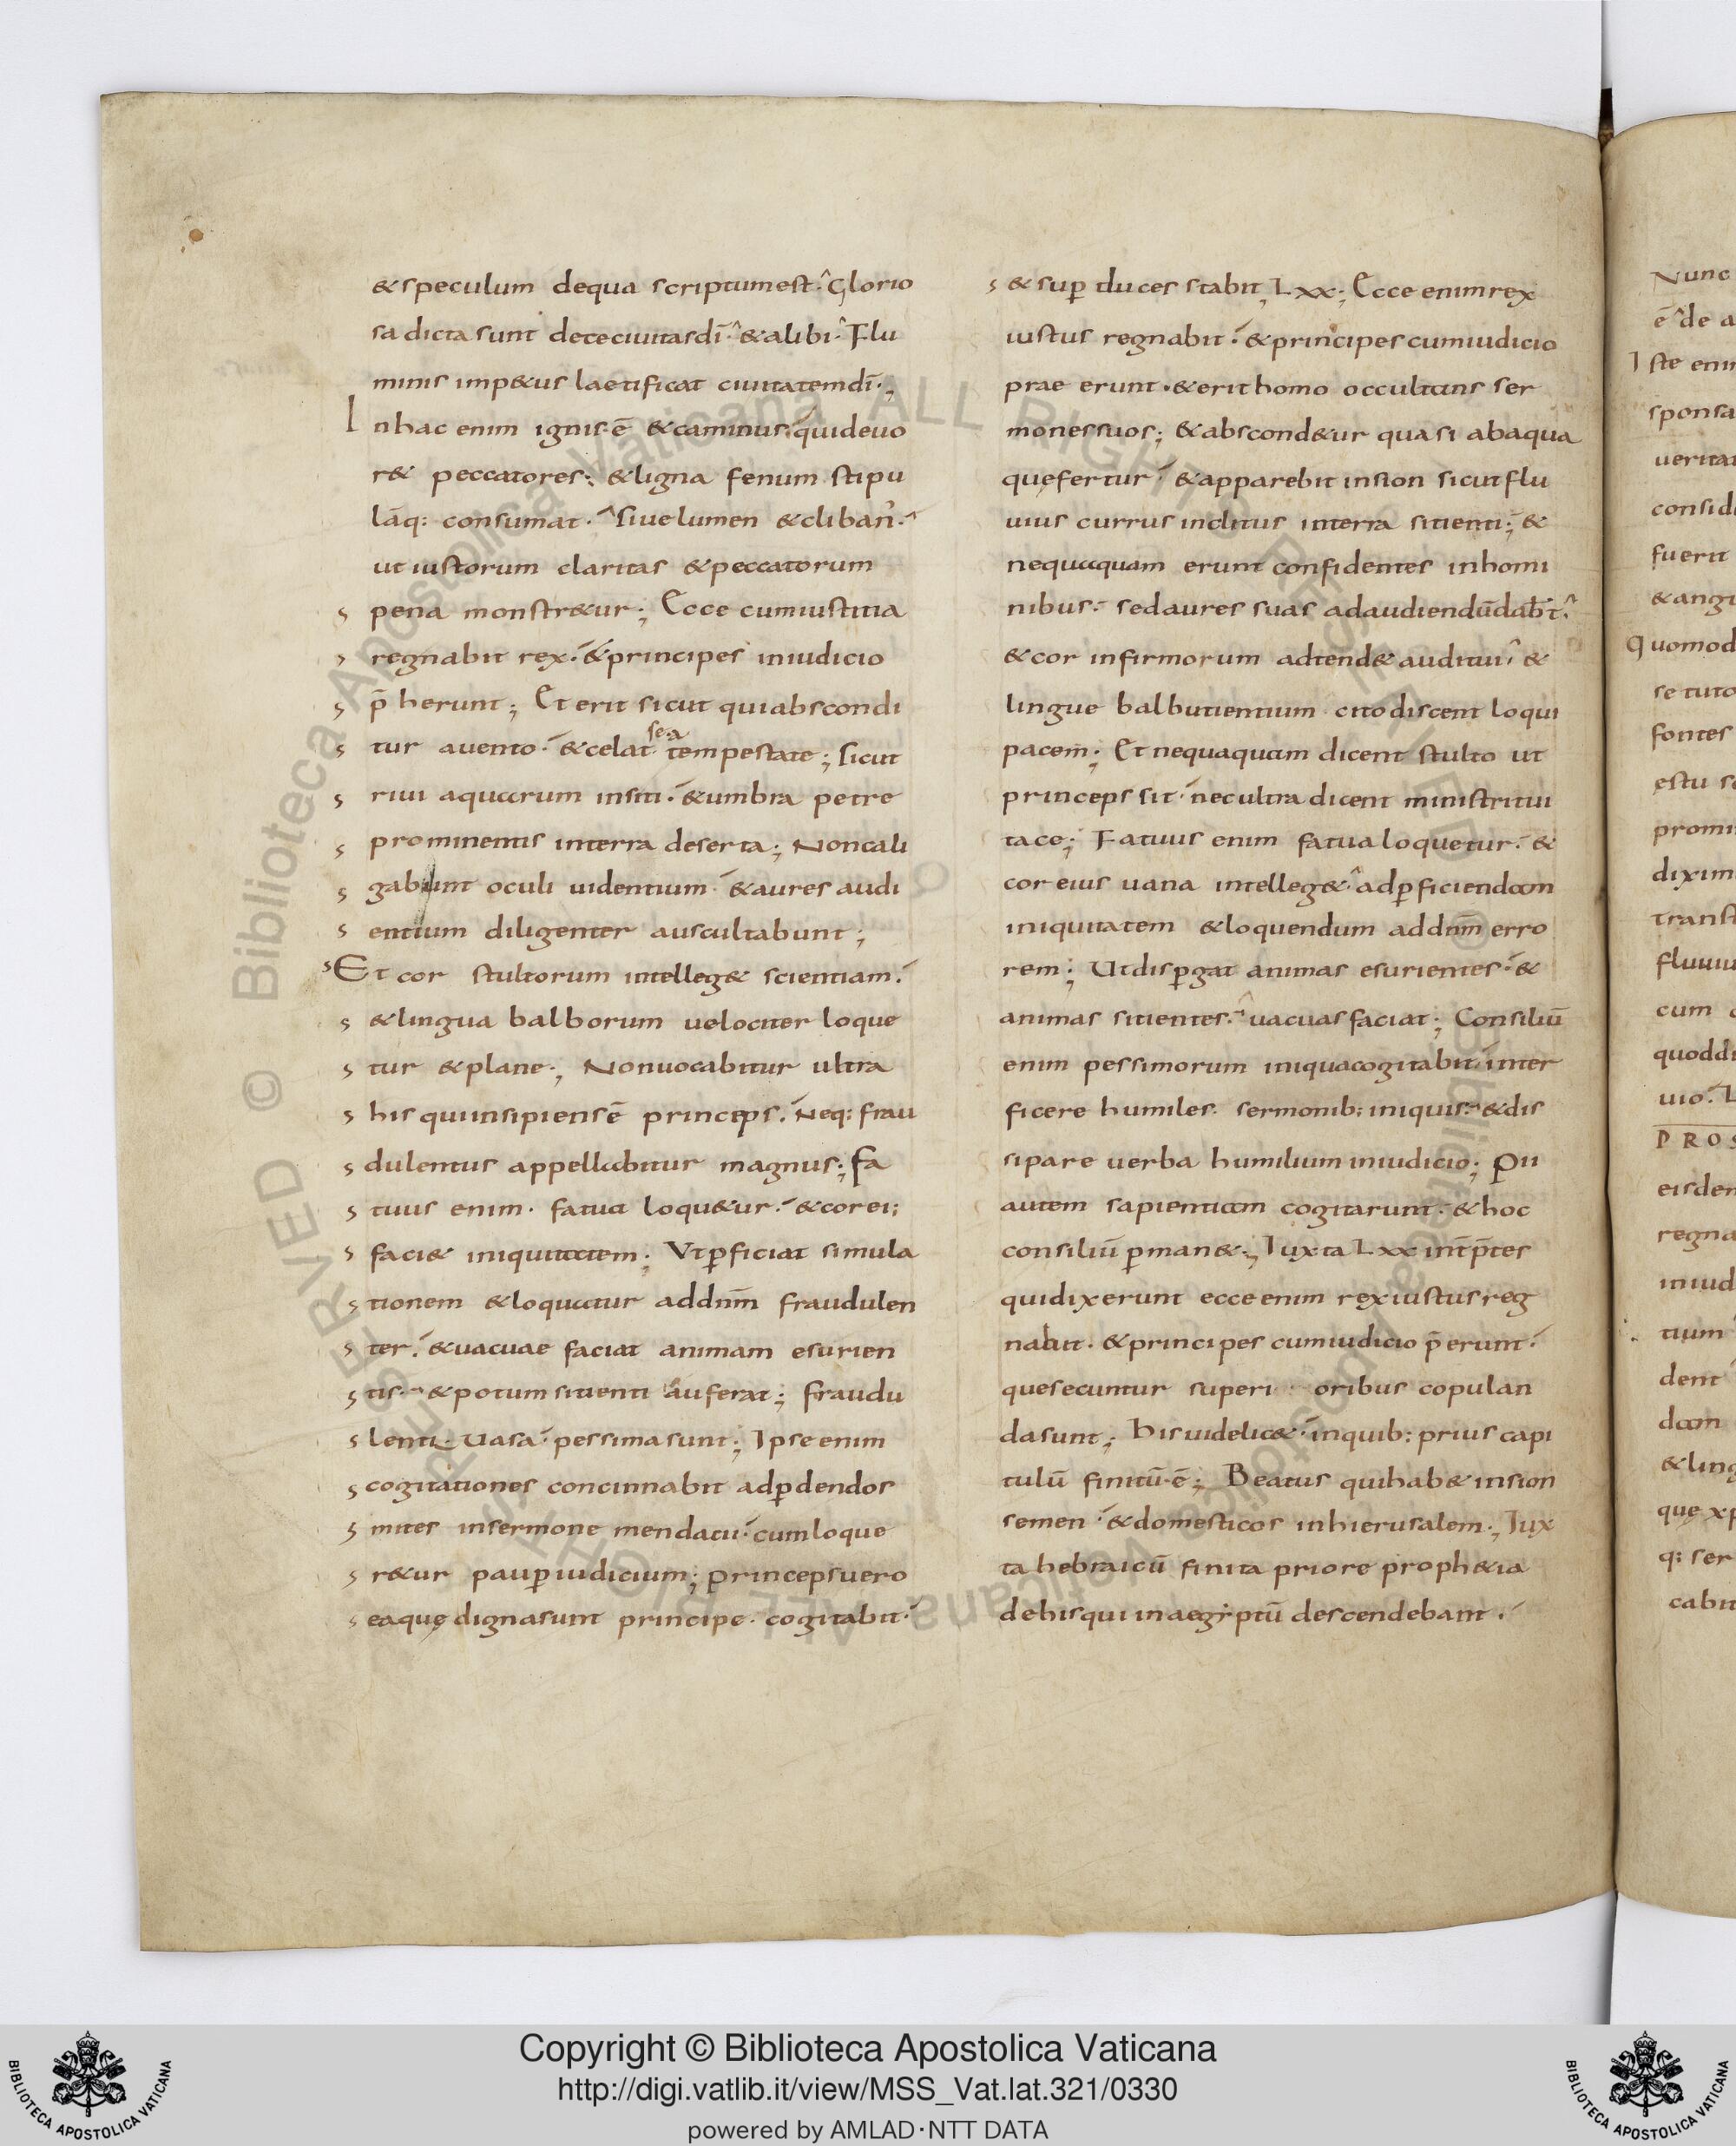 & speculum de qua scriptum est. Glorio
sa dicta sunt de te ciuitas dī. & alibi. Flu
minis imp&us laetificat ciuitatem dī.;
In hac enim ignis ē & caminus. qui deuo
r& peccatores; & ligna fenum stipu
lāq: consumat. siue lumen & cliban̄.
ut iustorum claritas & peccatorum
pena monstr&ur; Ecce cum iustitia
regnabit rex. & principes in iudicio
p̄herunt; Et erit sicut qui abscondi
tur a uento. & celat se a tempestate; sicut
riui aquarum in siti. & umbra petre
prominentis in terra deserta; Non cali
gabunt oculi uidentium. & aures audi
entium diligenter auscultabunt;
Et cor stultorum intelleg& scientiam.
& lingua balborum uelociter loque
tur & plane.; Non uocabitur ultra
his qui insipiens ē princeps. Neq: frau
dulentus appellabitur magnus; fa
tuus enim. fatua loqu&ur. & cor ei;
faci& iniquitatem; Vt ꝑficiat simula
tionem & loquatur ad dnm̄ fraudulen
ter. & uacuae faciat animam esurien
tis. & potum sitienti auferat; fraudu
lenti. uasa. pessima sunt; Ipse enim
cogitationes concinnabit ad ꝑdendos
mites in sermone mendatii. cum loque
r&ur pauꝑ iudicium; princeps uero
ea quę digna sunt principe. cogitabit.
& suꝑ duces stabit, Lxx; Ecce enim rex
iustus regnabit. & principes cum iudicio
prae erunt. & erit homo occultans ser
mones suos; & abscond&ur quasi ab aqua
quę fertur. & apparebit in sion sicut flu
uius currus inclitus in terra sitienti; &
nequaquam erunt confidentes in homi
nibus. sed aures suas ad audiendū dab̄t.
& cor infirmorum adtend& auditui. &
lingue balbutientium cito discent loqui
pacem; Et nequaquam dicent stulto ut
princeps sit. nec ultra dicent ministri tui
tace; Fatuus enim fatua loquetur. &
cor eius uana intelleg&. ad ꝑficiendam
iniquitatem & loquendum ad dnm̄ erro
rem; Ut disꝑgat animas esurientes. &
animas sitientes. uacuas faciat; Consiliū
enim pessimorum iniqua cogitabit inter
ficere humiles. sermonib: iniquis. & dis
sipare uerba humilium in iudicio; Pii
autem sapientiam cogitarunt. & hoc
consiliū ꝑman&.; Iuxta Lxx int̄p̄tes
qui dixerunt ecce enim rex iustus reg
nabit. & principes cum iudicio p̄erunt.
que secuntur superi oribus copulan
da sunt; His uidelic&. in quib: prius capi
tulū finitū ē; Beatus qui hab& in sion
semen. & domesticos in hierusalem.; Iux
ta hebraicū finita priore proph&ia
de his qui in aegyptū descendebant.
Nunc
ē de a
Iste eni
sponsa
ueritat
consid
fuerit
& angu
Quomod
se tuto
fontes
estu s
promi
dixim
transf
fluuiu
cum
quod d
uio. L
PROS
eisdem
regna
in iud
tium
dent
dam
& ling
que xp
q: ser
cabit
Copyright © Biblioteca Apostolica Vaticana
http://digi.vatlib.it/view/MSS_Vat.lat.321/0330
powered by AMLAD·NTT DATA
BIBLIOTECA APOSTOLICA VATICANA
BIBLIOTECA APOSTOLICA VATICANA